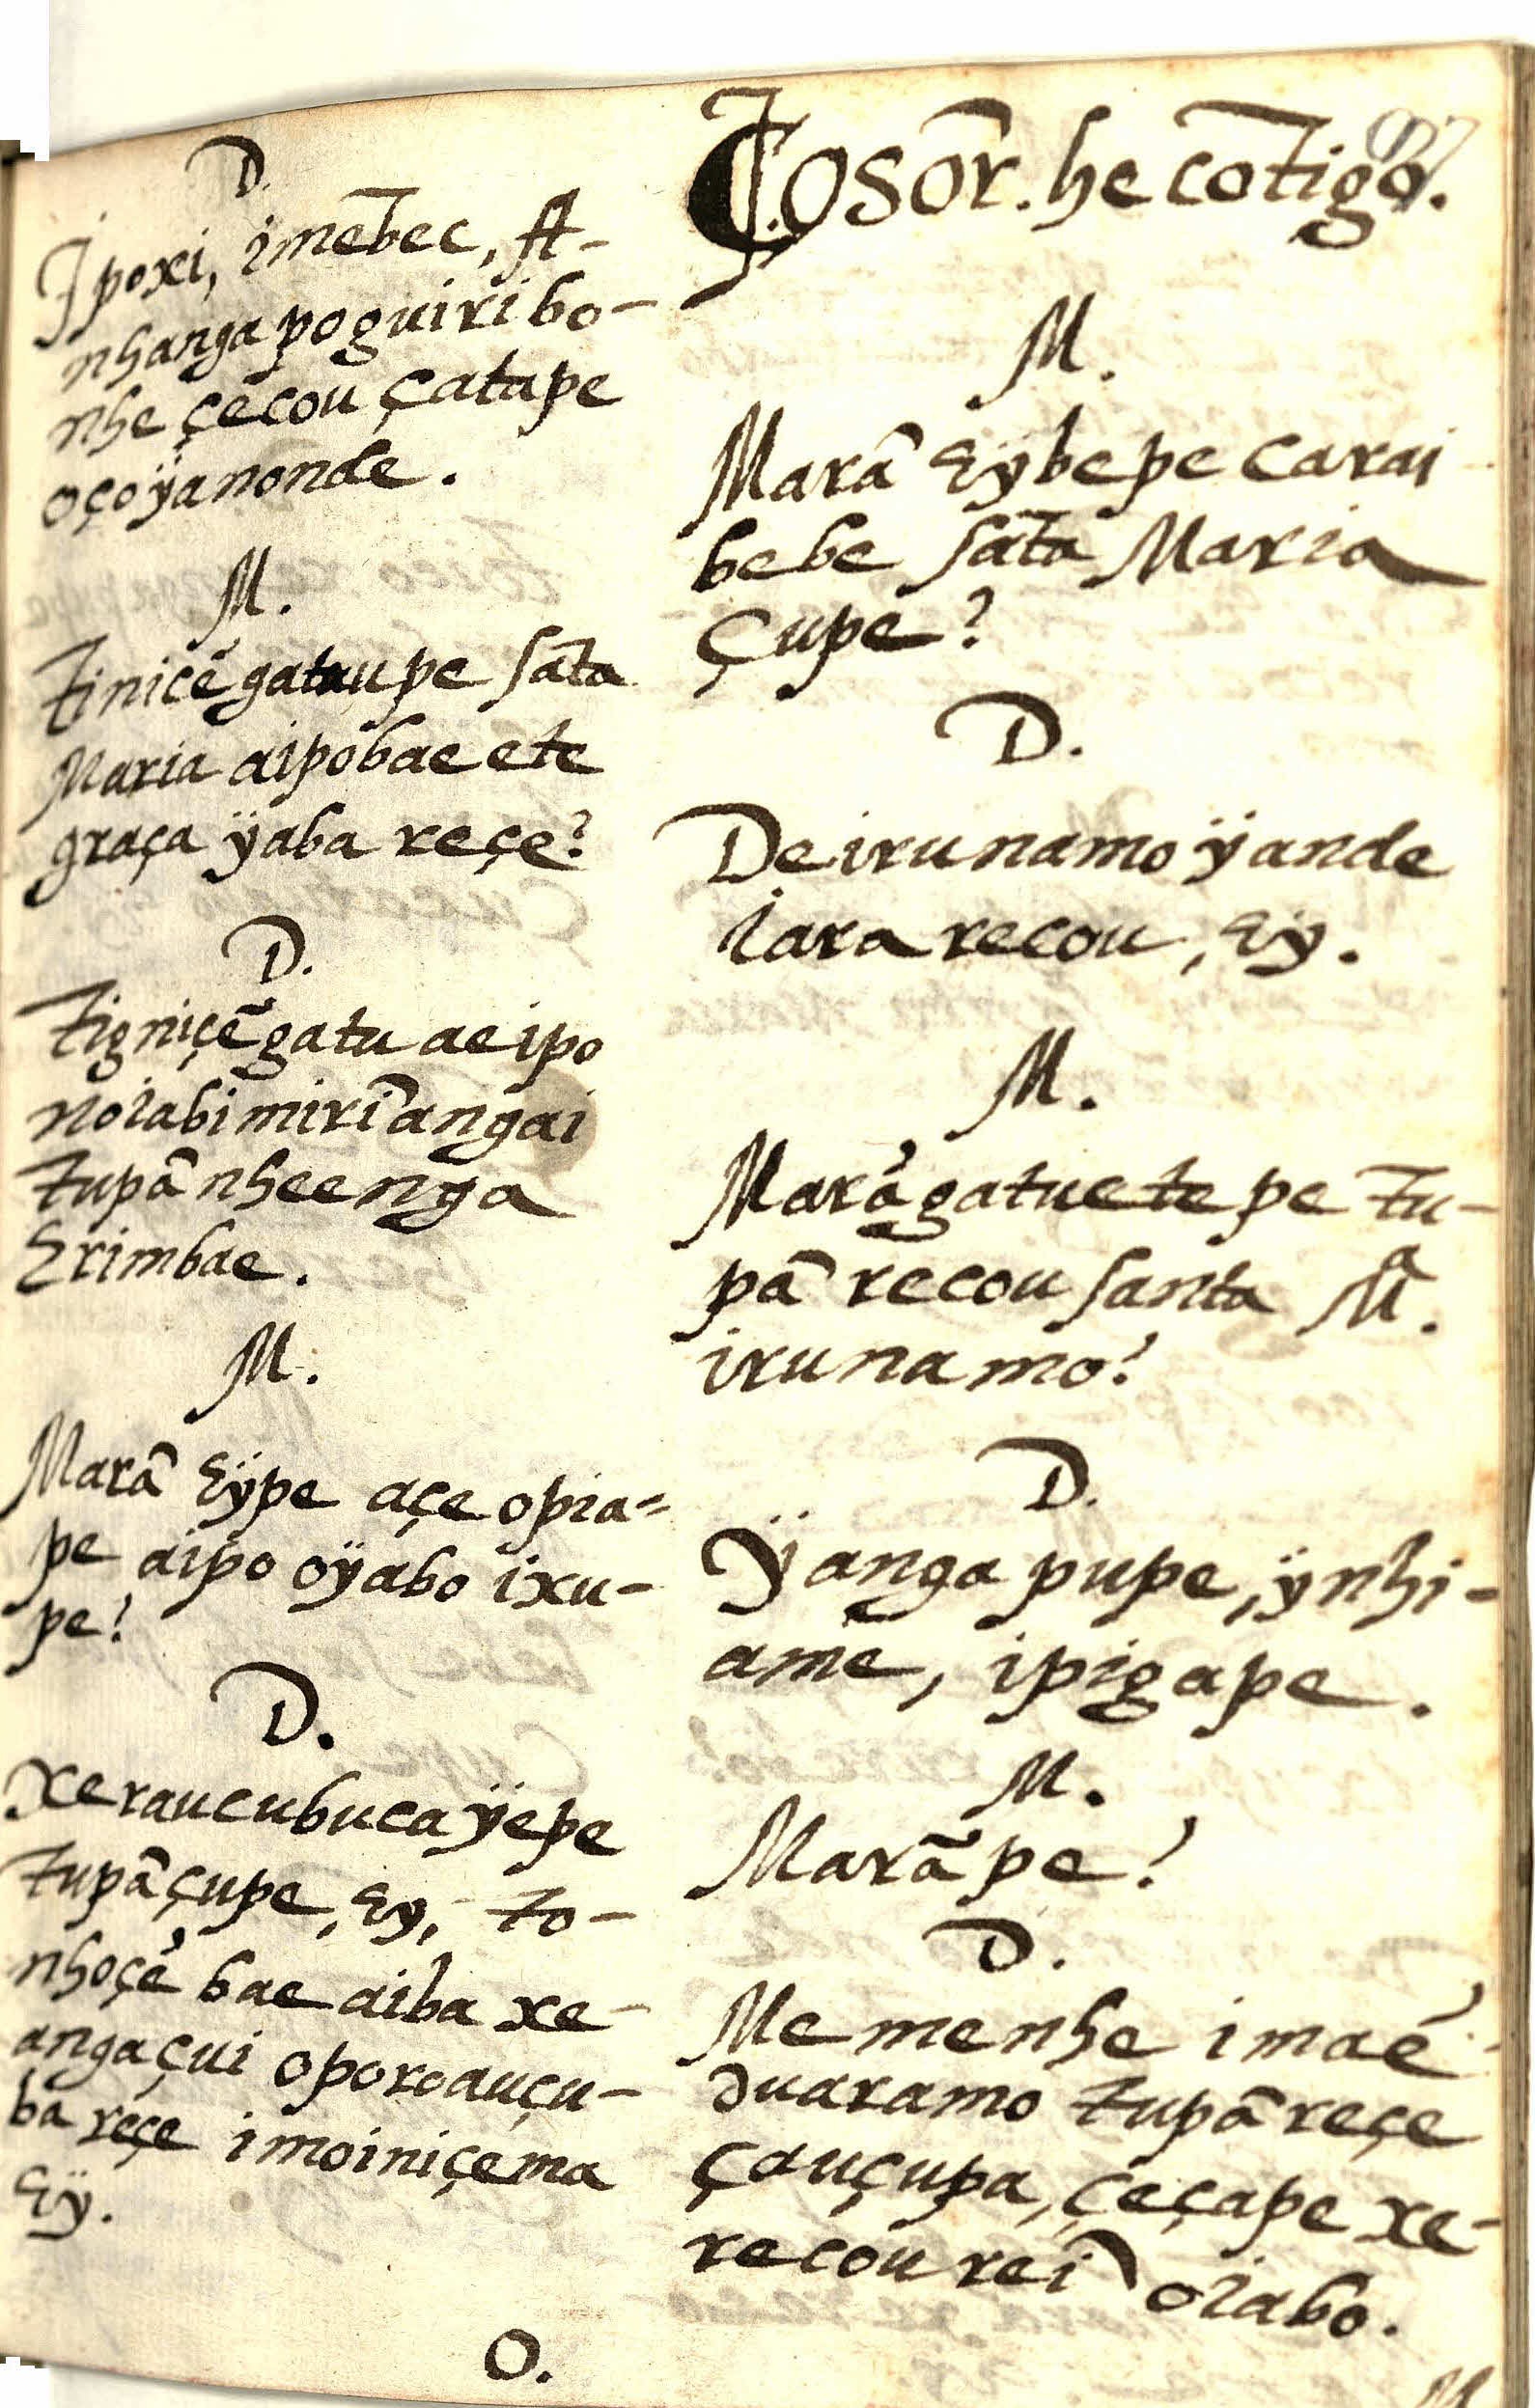 D.
Ipoxi, imẽbec, A-
nhanga poguiribo-
nhe çecou çatape
oçoÿanonde.
M.
Tinicẽgatuupe sãta
Maria aipobae ete
graça ÿaba reçe?
D.
Tigniçẽgatu aeipo
noiabi mirĩangai
tupã nheenga
Erimbae.
M.
Marã Eÿpe açe opia=
pe aipo oÿabo ixu-
pe?
D.
Xeraucubuca ÿepe
tupãçupe, Ey, to-
nhoçẽ bae aiba xe-
angaçui oporoauçu-
ba reçe imoiniçema
Eÿ.
O.
OSõr. he cõtigo.
M.
Marã Eÿbepe Carai
bebe Sãta Maria
Çupe?
D.
Deirunamo ÿande
iara recou, Eÿ.
M.
Marãgatuete pe Tu-
pã recou santa Mª.
irunamo?
D.
Ÿanga pupe, ÿnhi-
amẽ, ipigape.
M.
Marãpe?
D.
Memenhe imaẽ
duaramo tupã reçe
çauçupa, çeçape xe-
recou reĩ oiabo.
M